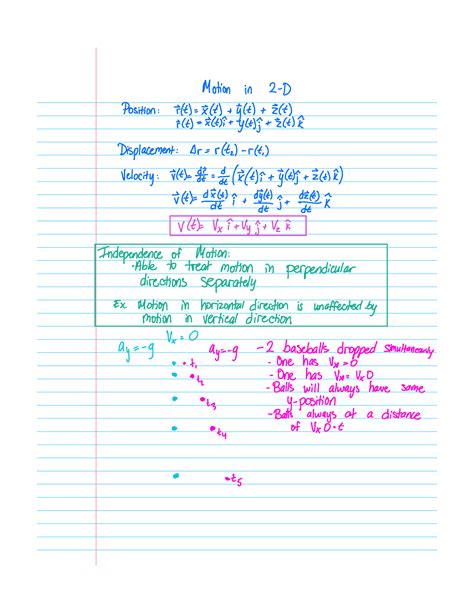 Motion in 2-D
Position: r⃗(t) = x⃗(t) + y⃗(t) + z⃗(t)
r⃗(t) = x⃗(t)î + y⃗(t)ĵ + z⃗(t)k̂
Displacement: Δr = r(t₂) - r(t₁)
Velocity: v⃗(t) = dr⃗/dt = d/dt (x⃗(t)î + y⃗(t)ĵ + z⃗(t)k̂)
v⃗(t) = dx⃗(t)/dt î + dy⃗(t)/dt ĵ + dz⃗(t)/dt k̂
V(t) = Vx î + Vy ĵ + Vz k̂
Independence of Motion:
· Able to treat motion in perpendicular
directions separately
Ex Motion in horizontal direction is unaffected by
motion in vertical direction
Vx = 0
ay = -g
ay = -g
t₁
t₂
t₃
t₄
t₅
- 2 baseballs dropped simultaneously
- One has Vx = 0
- One has Vx = Vx0
- Balls will always have same
y-position
- Balls always at a distance
of Vx0·t